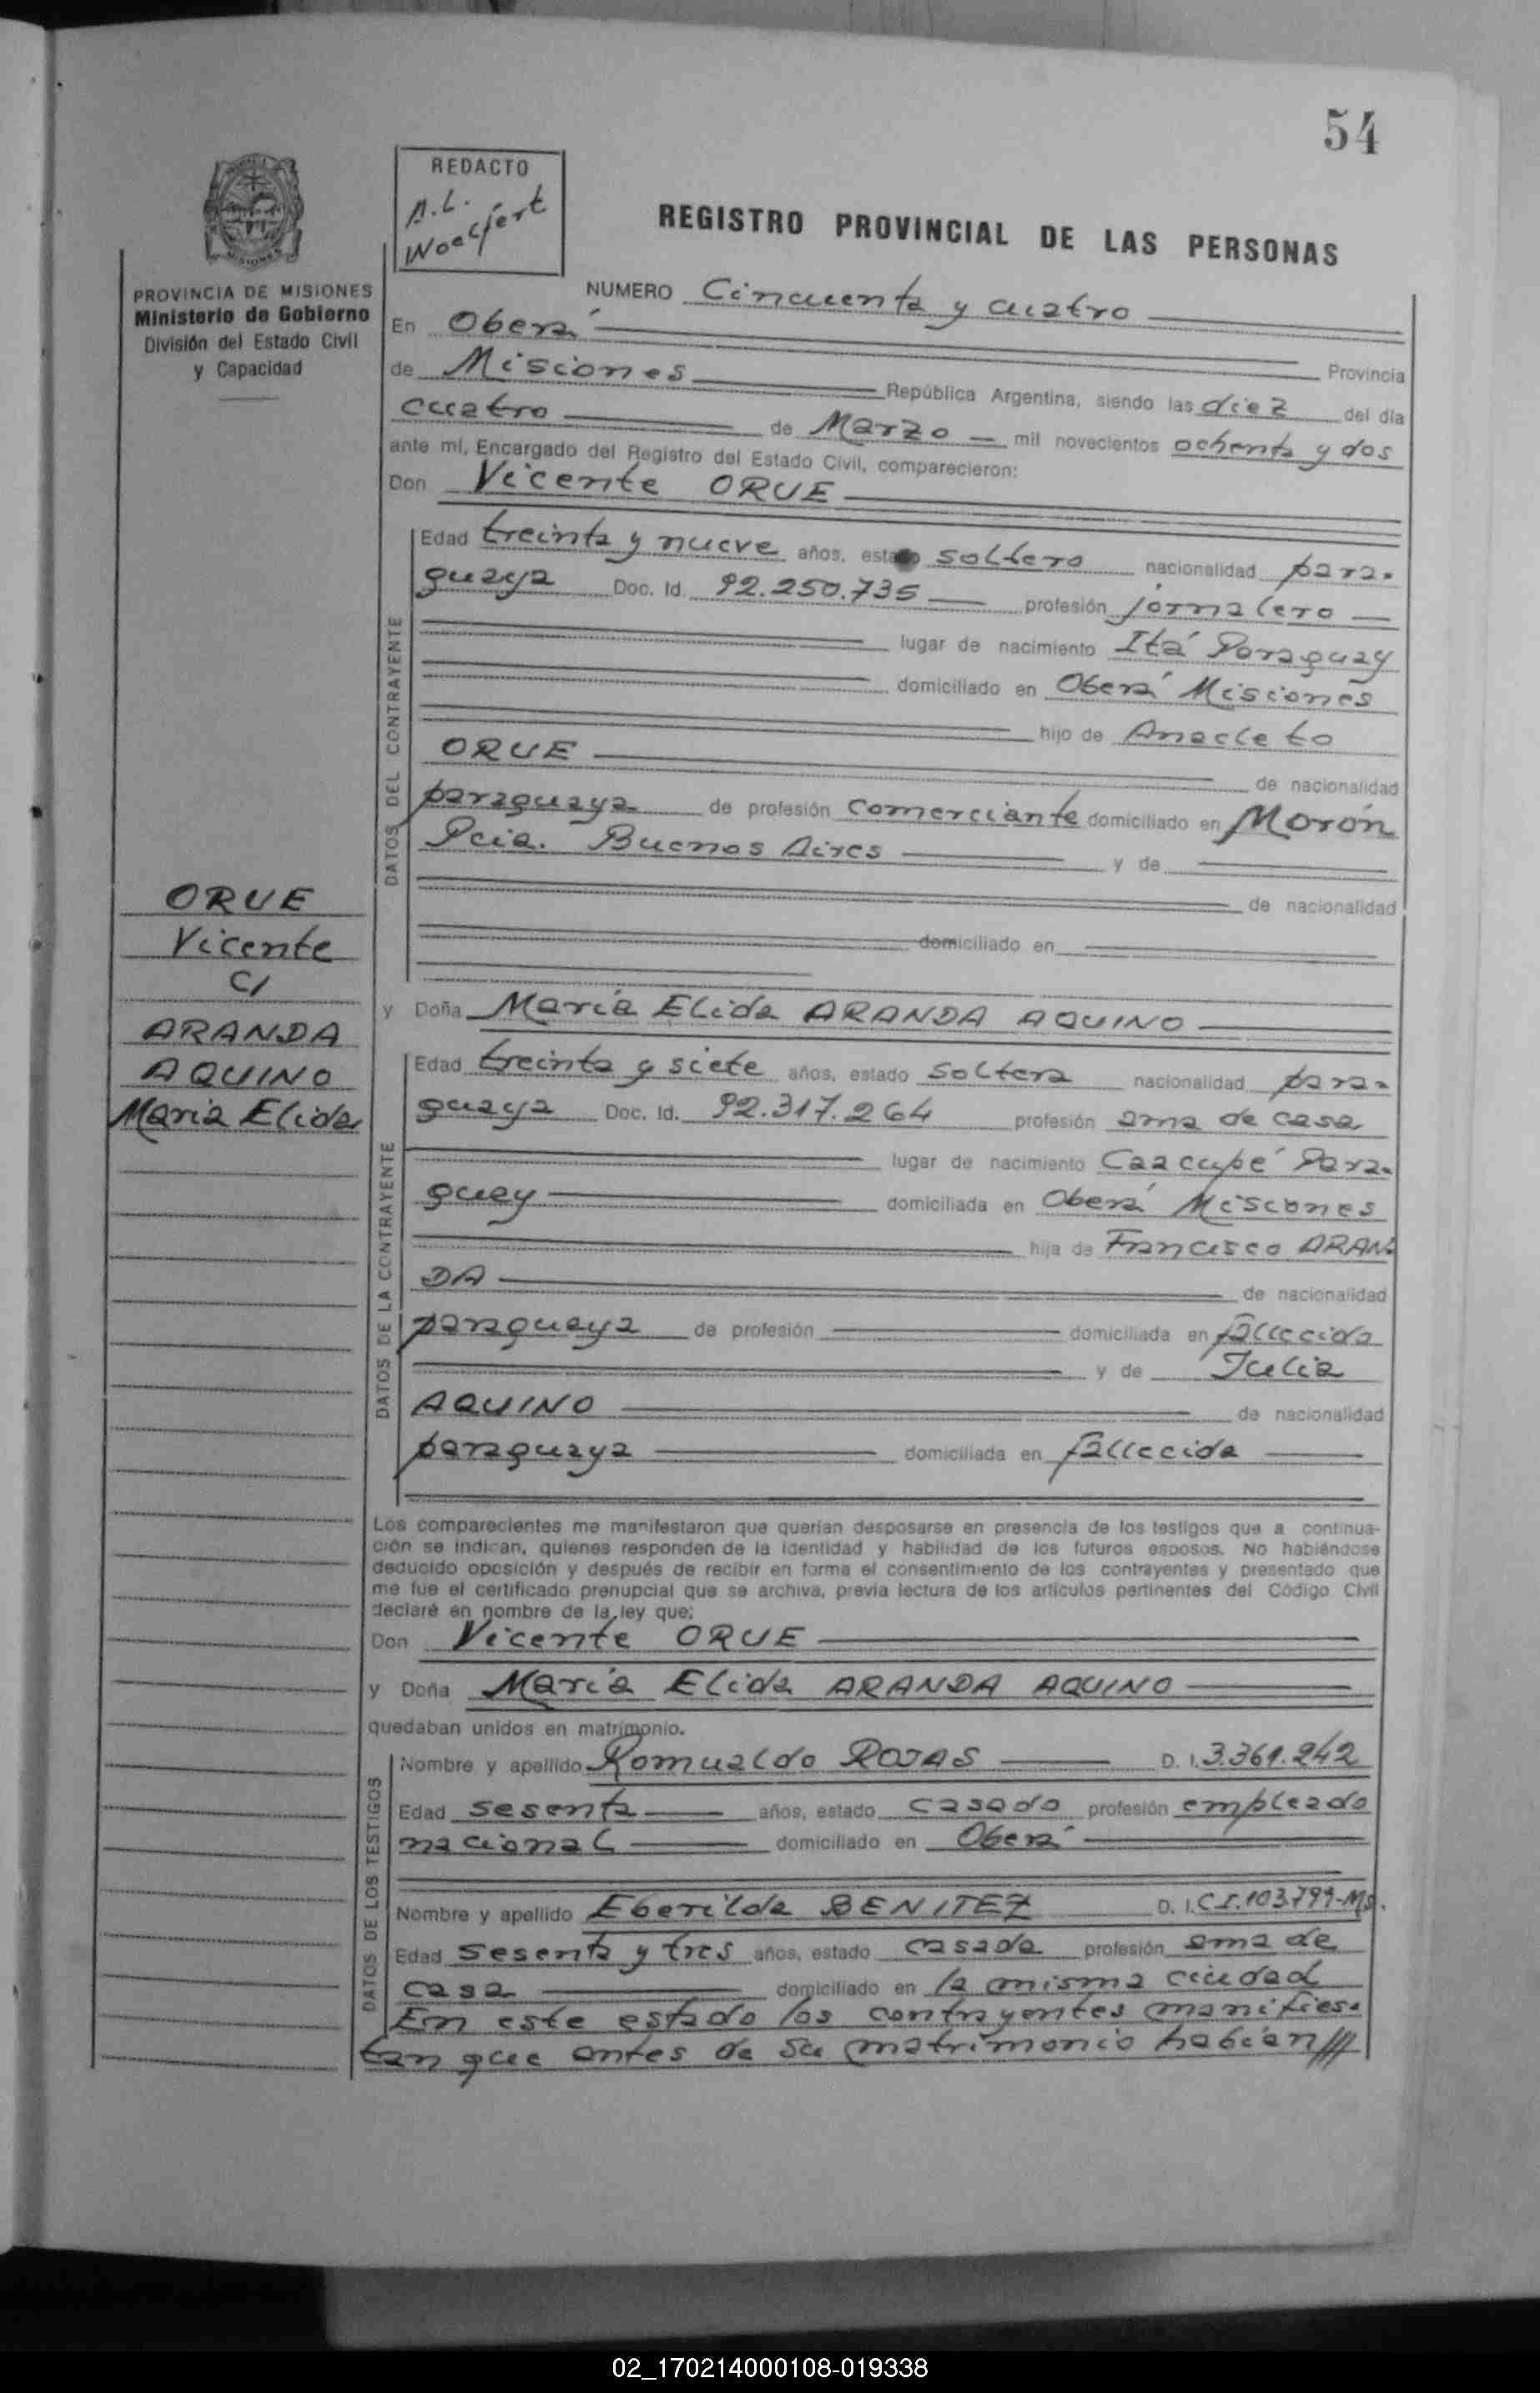 54
REDACTO
A.L.
Woelfert
REGISTRO PROVINCIAL DE LAS PERSONAS
PROVINCIA DE MISIONES
Ministerio de Gobierno
División del Estado Civil
y Capacidad
NUMERO Cincuenta y cuatro
En Oberá Provincia
de Misiones República Argentina, siendo las diez del día
cuatro de Marzo mil novecientos ochenta y dos
ante mí, Encargado del Registro del Estado Civil, comparecieron:
Don Vicente ORUE
DATOS DEL CONTRAYENTE
Edad treinta y nueve años, estado soltero nacionalidad para-
guaya Doc. Id. 92.250.735 profesión jornalero
lugar de nacimiento Itá Paraguay
domiciliado en Oberá Misiones
hijo de Anacleto
ORUE de nacionalidad
paraguaya de profesión comerciante domiciliado en Morón
Pcia. Buenos Aires y de
de nacionalidad
domiciliado en
ORUE
Vicente
C/
ARANDA
AQUINO
Maria Elida
y Doña María Elida ARANDA AQUINO
DATOS DE LA CONTRAYENTE
Edad treinta y siete años, estado soltera nacionalidad para-
guaya Doc. Id. 92.317.264 profesión ama de casa
lugar de nacimiento Caacupé Para-
guay domiciliada en Oberá Misiones
hija de Francisco ARAN-
DA de nacionalidad
paraguaya de profesión domiciliada en fallecido
y de Julia
AQUINO de nacionalidad
paraguaya domiciliada en fallecida
Los comparecientes me manifestaron que querían desposarse en presencia de los testigos que a continua-
ción se indican, quienes responden de la identidad y habilidad de los futuros esposos. No habiéndose
deducido oposición y después de recibir en forma el consentimiento de los contrayentes y presentado que
me fue el certificado prenupcial que se archiva, previa lectura de los artículos pertinentes del Código Civil
declaré en nombre de la ley que:
Don Vicente ORUE
y Doña María Elida ARANDA AQUINO
quedaban unidos en matrimonio.
DATOS DE LOS TESTIGOS
Nombre y apellido Romualdo ROJAS D. I. 3.361.242
Edad sesenta años, estado casado profesión empleado
nacional domiciliado en Oberá
Nombre y apellido Eberilda BENITEZ D. I. C.I. 103.799-Ms.
Edad sesenta y tres años, estado casada profesión ama de
casa domiciliado en la misma ciudad
En este estado los contrayentes manifies-
tan que antes de su matrimonio habían///
02_170214000108-019338